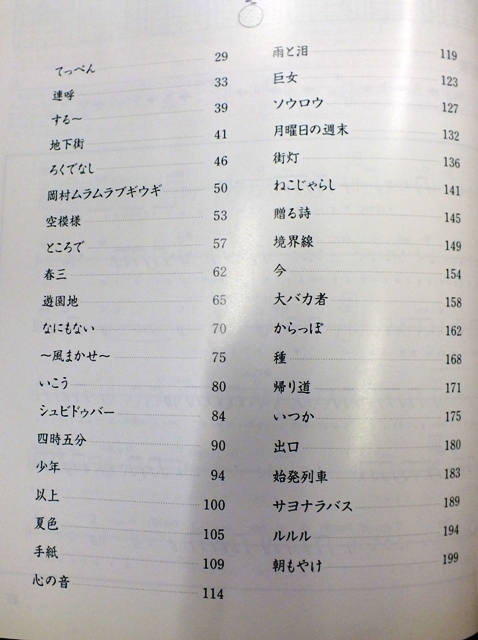 てっぺん 29
連呼 33
する〜 39
地下街 41
ろくでなし 46
岡村ムラムラブギウギ 50
空模様 53
ところで 57
春三 62
遊園地 65
なにもない 70
〜風まかせ〜 75
いこう 80
シュビドゥバー 84
四時五分 90
少年 94
以上 100
夏色 105
手紙 109
心の音 114
雨と泪 119
巨女 123
ソウロウ 127
月曜日の週末 132
街灯 136
ねこじゃらし 141
贈る詩 145
境界線 149
今 154
大バカ者 158
からっぽ 162
種 168
帰り道 171
いつか 175
出口 180
始発列車 183
サヨナラバス 189
ルルル 194
朝もやけ 199